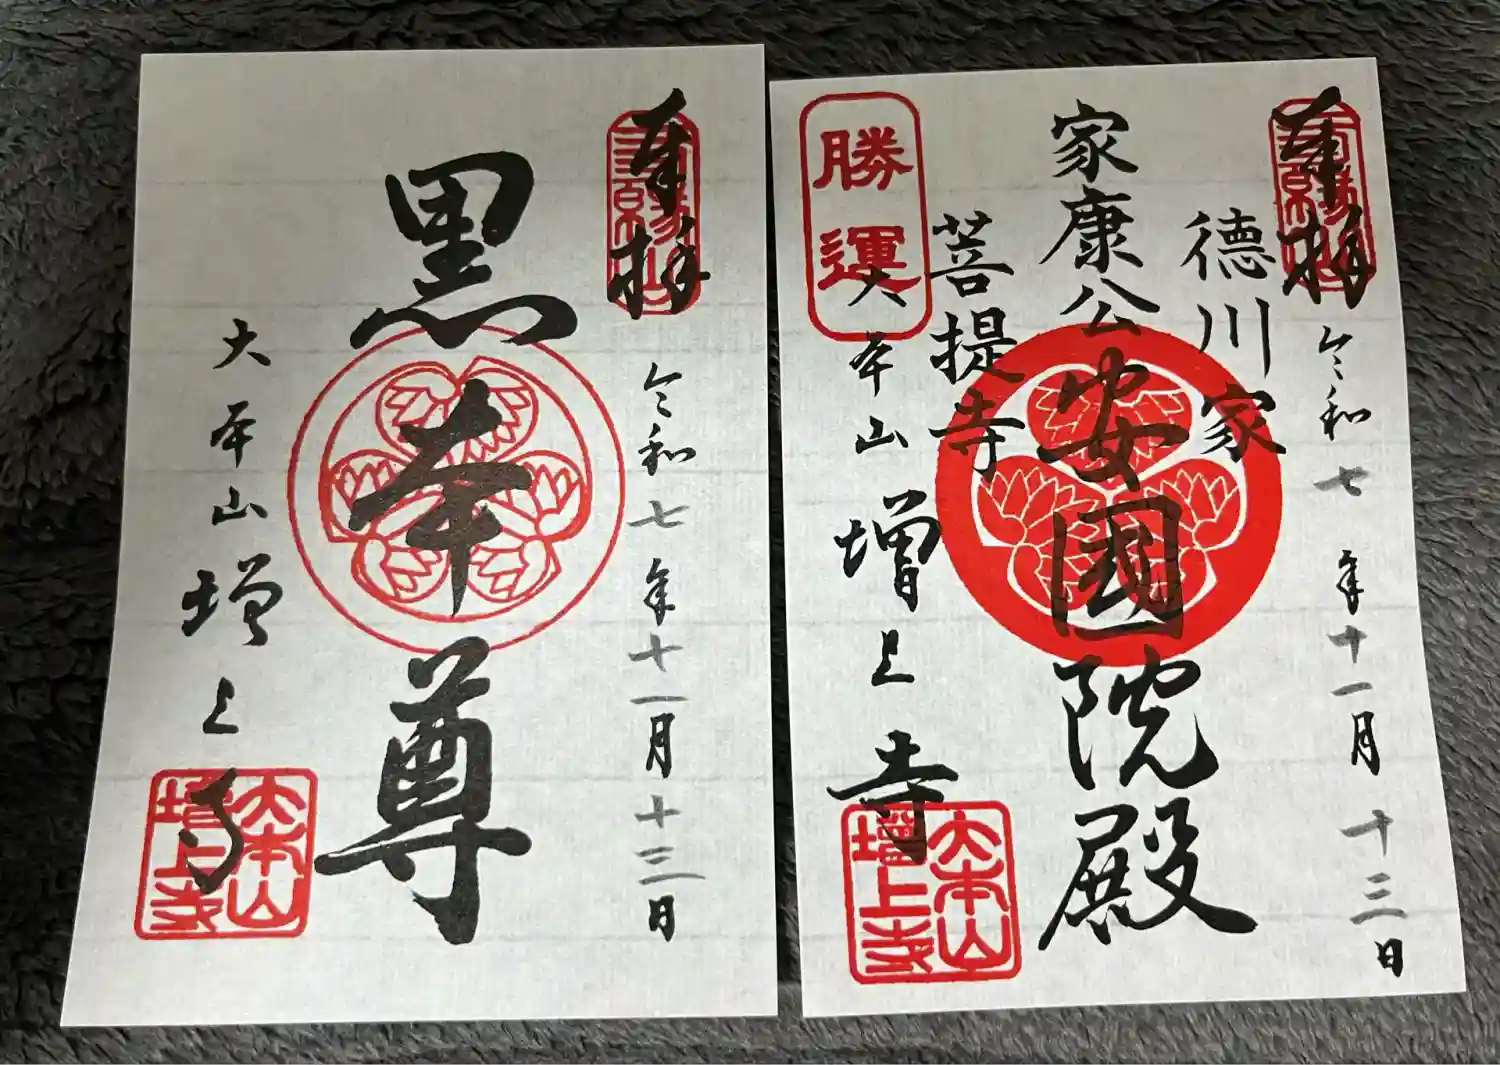 奉拝
三縁山
令和七年十一月十三日
黒本尊
大本山増上寺
大本山
増上寺
奉拝
三縁山
令和七年十一月十三日
徳川家
家康公安國院殿
菩提寺
勝運
大本山増上寺
大本山
増上寺